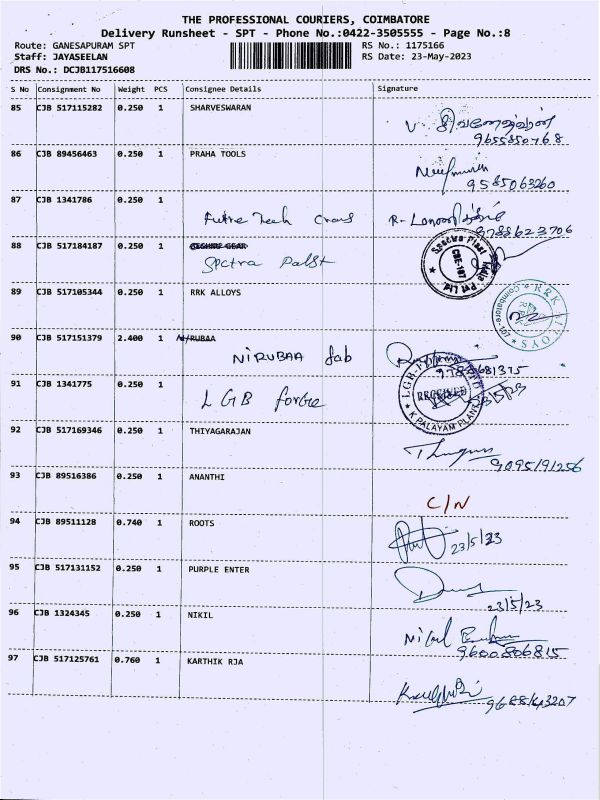 THE PROFESSIONAL COURIERS, COIMBATORE
Delivery Runsheet - SPT - Phone No.:0422-3505555 - Page No.:8
Route: GANESAPURAM SPT RS No.: 1175166
Staff: JAYASEELAN RS Date: 23-May-2023
DRS No.: DCJB117516608
S No Consignment No Weight PCS Consignee Details Signature
85 CJB 517115282 0.250 1 SHARVESWARAN
9655850768
86 CJB 89456463 0.250 1 PRAHA TOOLS
9585063260
87 CJB 1341786 0.250 1
Futre Tech
9788623706
88 CJB 517184187 0.250 1
Spctra Palst
Spectra Plast India Pvt Ltd.
CBE-107
89 CJB 517105344 0.250 1 RRK ALLOYS
RRK ALLOYS
Coimbatore-107
90 CJB 517151379 2.400 1 NIRUBAA
NIRUBAA fab
91 CJB 1341775 0.250 1
LGB forge
RECEIVED
K PALAYAM PLANT
92 CJB 517169346 0.250 1 THIYAGARAJAN
9095191256
93 CJB 89516386 0.250 1 ANANTHI
C/N
94 CJB 89511128 0.740 1 ROOTS
23/5/23
95 CJB 517131152 0.250 1 PURPLE ENTER
23/5/23
96 CJB 1324345 0.250 1 NIKIL
9600806815
97 CJB 517125761 0.760 1 KARTHIK RJA